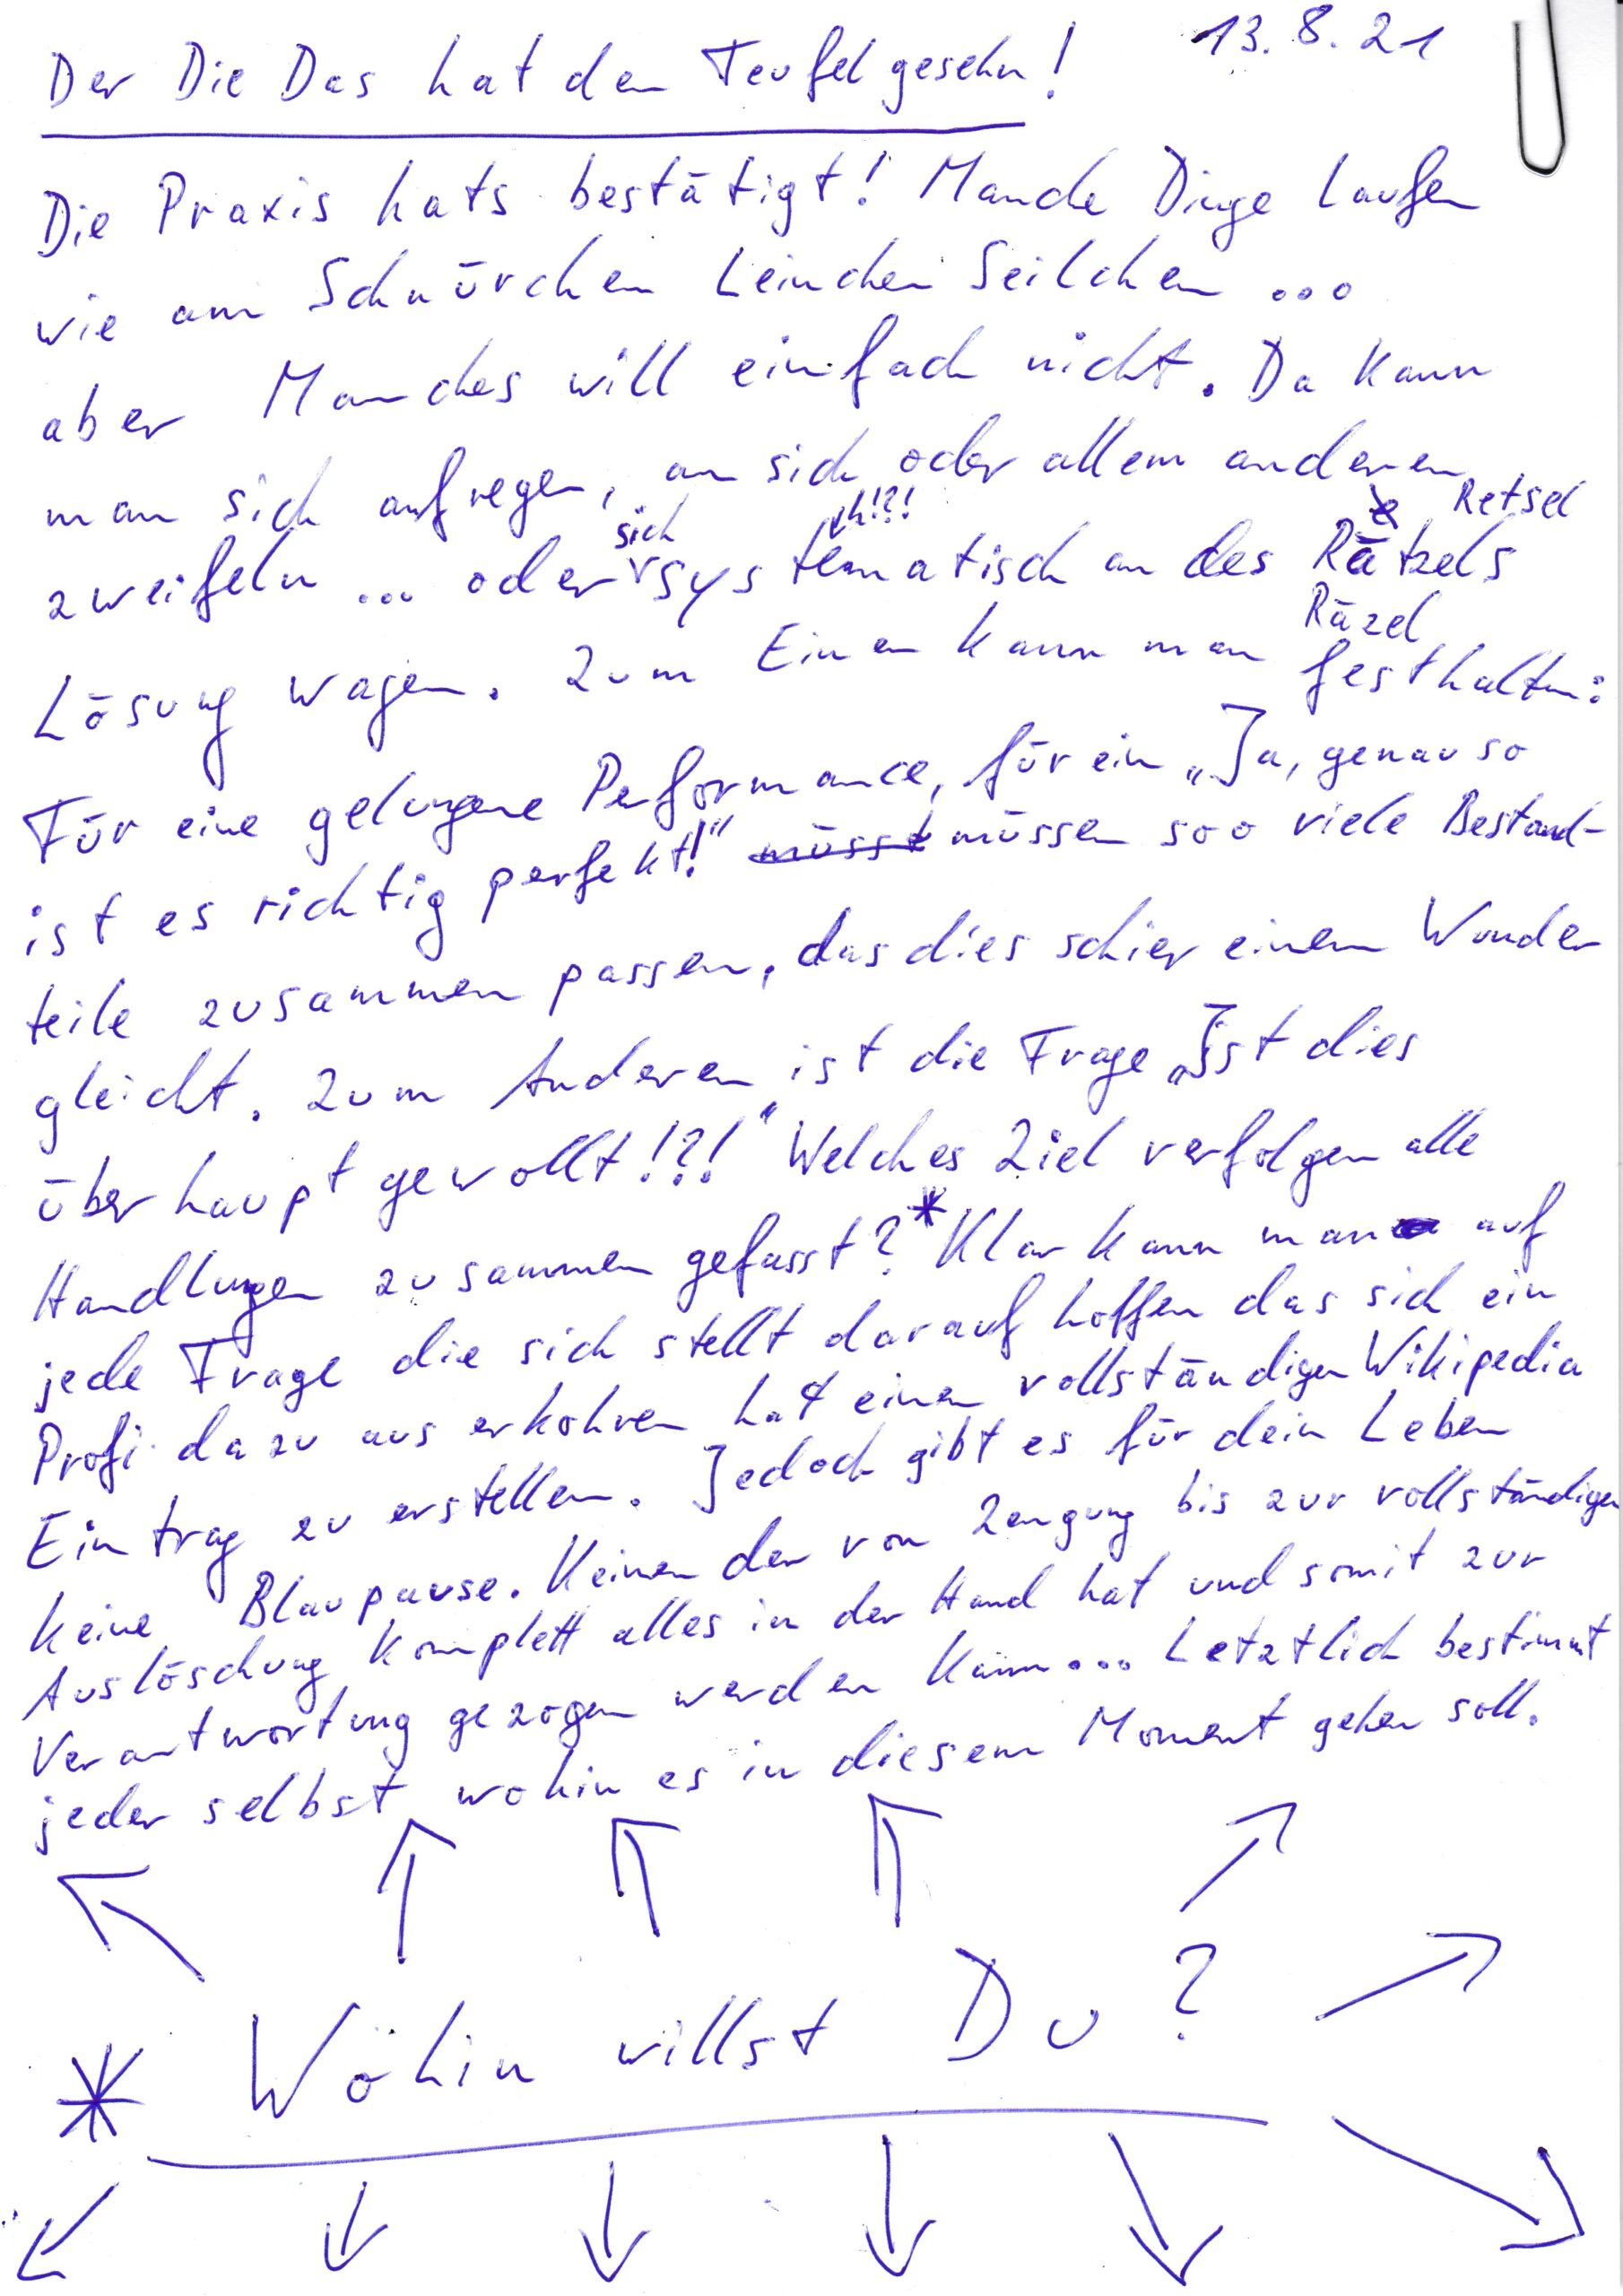 13.8.21
Der Die Das hat den Teufel gesehn!
Die Praxis hats bestätigt! Manche Dinge laufen
wie am Schnürchen Leinchen Seilchen ...
aber Manches will einfach nicht. Da kann
man sich aufregen, an sich oder allem anderen
zweifeln ... oder sich systematisch an des Rätzels
h!?!
Retsel
Räzel
Lösung wagen. Zum Einen kann man festhalten:
Für eine gelungene Performance, für ein „Ja, genau so
ist es richtig perfekt!" müsst müssen soo viele Bestand-
teile zusammen passen, das dies schier einem Wunder
gleicht. Zum Anderen ist die Frage „Ist dies
überhaupt gewollt!?!" Welches Ziel verfolgen alle
Handlungen zusammen gefasst?* Klar kann man auf
jede Frage die sich stellt darauf hoffen das sich ein
Profi dazu aus erkohren hat einen vollständigen Wikipedia
Eintrag zu erstellen. Jedoch gibt es für dein Leben
keine Blaupause. Keinen der von Zeugung bis zur vollständigen
Auslöschung komplett alles in der Hand hat und somit zur
Verantwortung gezogen werden kann... Letztlich bestimmt
jeder selbst wohin es in diesem Moment gehen soll.
* Wohin willst Du?